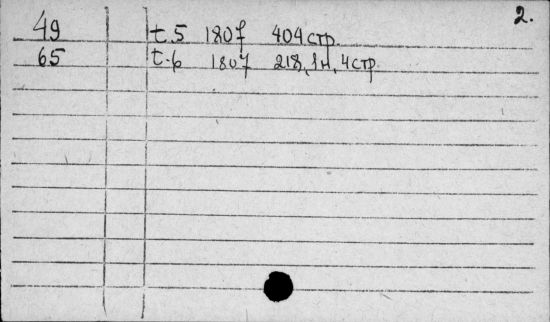 2.
49 t.5 1807 404 стр.
65 t.6 1807 218, 1н, 4 стр